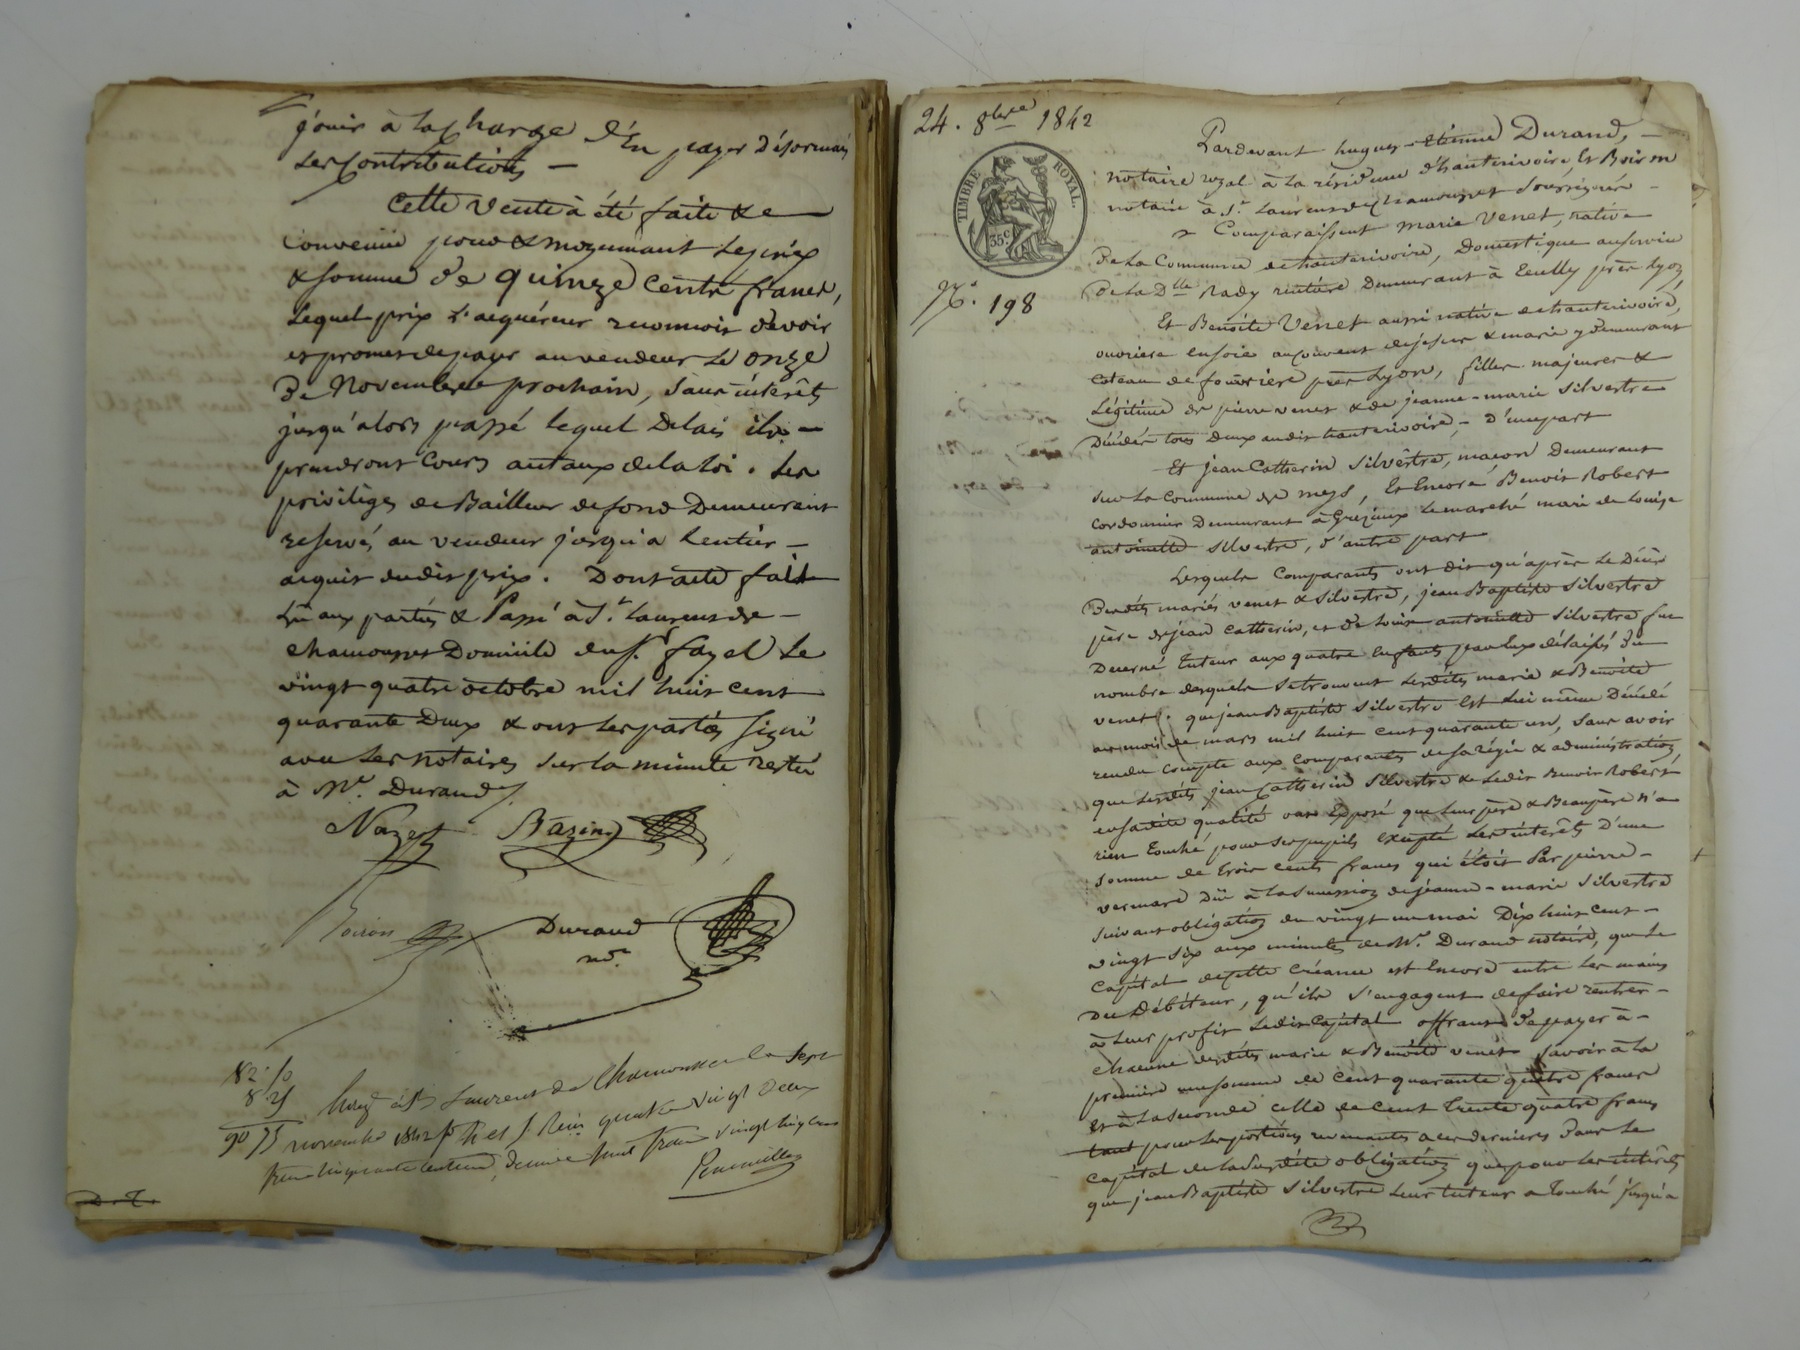 jouir à la charge d'En payer désormais
les Contributions —
Cette Vente à été faite & —
Convenue pour & moyennant le prix
& somme de quinze Cents francs,
lequel prix l'acquéreur reconnoit devoir
et promet de payer au vendeur le onze
De Novembre prochain, sans intérêts
jusqu'alors passé lequel Délais ils —
prendront Cours au taux de la loi. Les
privilèges de Bailleur de fond Demeurent
reservés au vendeur jusqu'a lentier —
acquit dudit prix. Dont acte fait
Lu aux parties & Passé à St. Laurent de —
chamousset Domicile du Sr. fayel Le
vingt quatre octobre mil huit cent
quarante Deux & ont les parties Signé
avec Les notaires sur la minute restée
à Me. Durand
Nazest Bazin
Voiron Durand
nre.
82 50
8 25
90 75
Enreg. à St Laurent de Chamousset le sept
novembre 1842 Reçu quatre vingt deux
francs cinquante centimes, décime huit francs vingt cinq cent
D. T.
24. 8bre 1842
TIMBRE ROYAL.
35c
N°. 198
Pardevant hugues-étienne Durand, —
notaire royal à la résidence d'hauterivoire, Et Voiron
notaire à St. Laurent de Chamousset soussignés —
Comparaissent marie Venet, native
De La Commune de hauterivoire, Domestique au service
De La Dlle Rady rentière Demeurant à Ecully près Lyon,
Et Benoîte Venet aussi native de hauterivoire,
ouvrière en soie au couvent de jesus & marie y demeurant
Coteau de fourvière près Lyon, filles majeures &
Légitimes de pierre venet & de jeanne-marie Silvestre
Décédés tous deux audit hauterivoire, — D'une part
Et jean Catherin Silvestre, maçon Demeurant
sur La Commune de meys, Et Encore Benoit Robert
cordonnier Demeurant à Grézieux Le marché mari de Louise
antoinette Silvestre, d'autre part
Lesquels Comparants ont dit qu'après Le Décès
Desdits mariés venet & Silvestre, jean Baptiste Silvestre
père de jean Catherin, et de Louise antoinette Silvestre fut
Décerné Tuteur aux quatre Enfants par eux délaissés Du
nombre desquels se trouvent Lesdites marie & Benoîte
venet; que jean Baptiste Silvestre Est Lui même Décédé
au mois de mars mil huit cent quarante un, sans avoir
rendu Compte aux Comparantes de sa régie & administration,
que Lesdits jean Catherin Silvestre & Ledit Benoit Robert
en sadite qualité ont Exposé que Leur père & Beaupère n'a
rien Touché pour ses pupils Excepté Les intérêts D'une
somme de trois cents francs qui étoit Par pierre —
vermare Dûe à la succession de jeanne-marie Silvestre
suivant obligation du vingt un mai Dix huit Cent —
vingt six aux minutes de Me. Durand notaire, que Le
Capital de cette Créance est Encore entre Les mains
Du Débiteur, qu'ils s'engagent de faire rentrer —
à Leur profit Ledit Capital offrant De payer à —
chacune desdites marie & Benoîte venet Savoir à La
première une somme de Cent quarante quatre francs
Et à La seconde celle de Cent trente quatre francs
tant pour Les portions revenantes à ces dernières Dans Le
Capital de La susdite obligation que pour Les intérêts
que jean Baptiste Silvestre Leur tuteur a touché jusqu'a